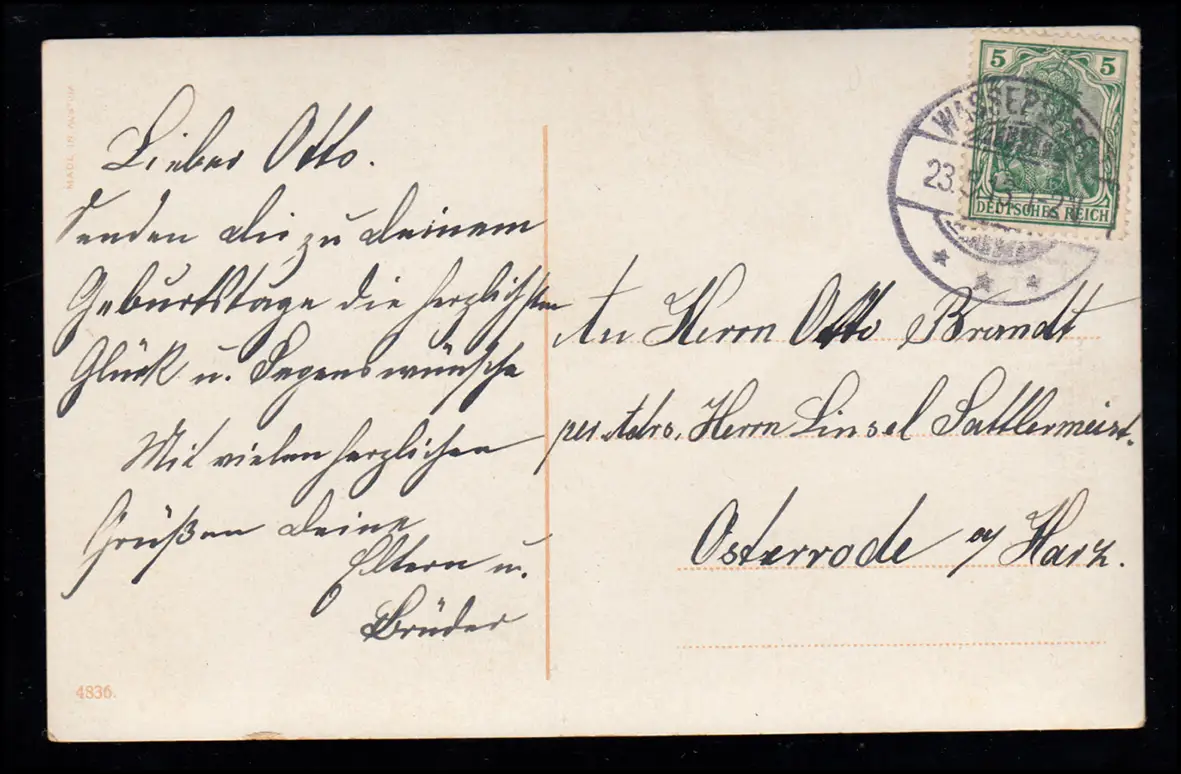 MADE IN AUSTRIA
Lieber Otto.
Senden dir zu deinem
Geburtstage die herzlichsten
Glück u. Segenswünsche
Mit vielen herzlichen
Grüßen deine
Eltern u.
Brüder
4836.
5 5
DEUTSCHES REICH
23.
An Herrn Otto Brandt
per Adrs. Herrn Linsel Sattlermeist.
Osterrode a/ Harz.